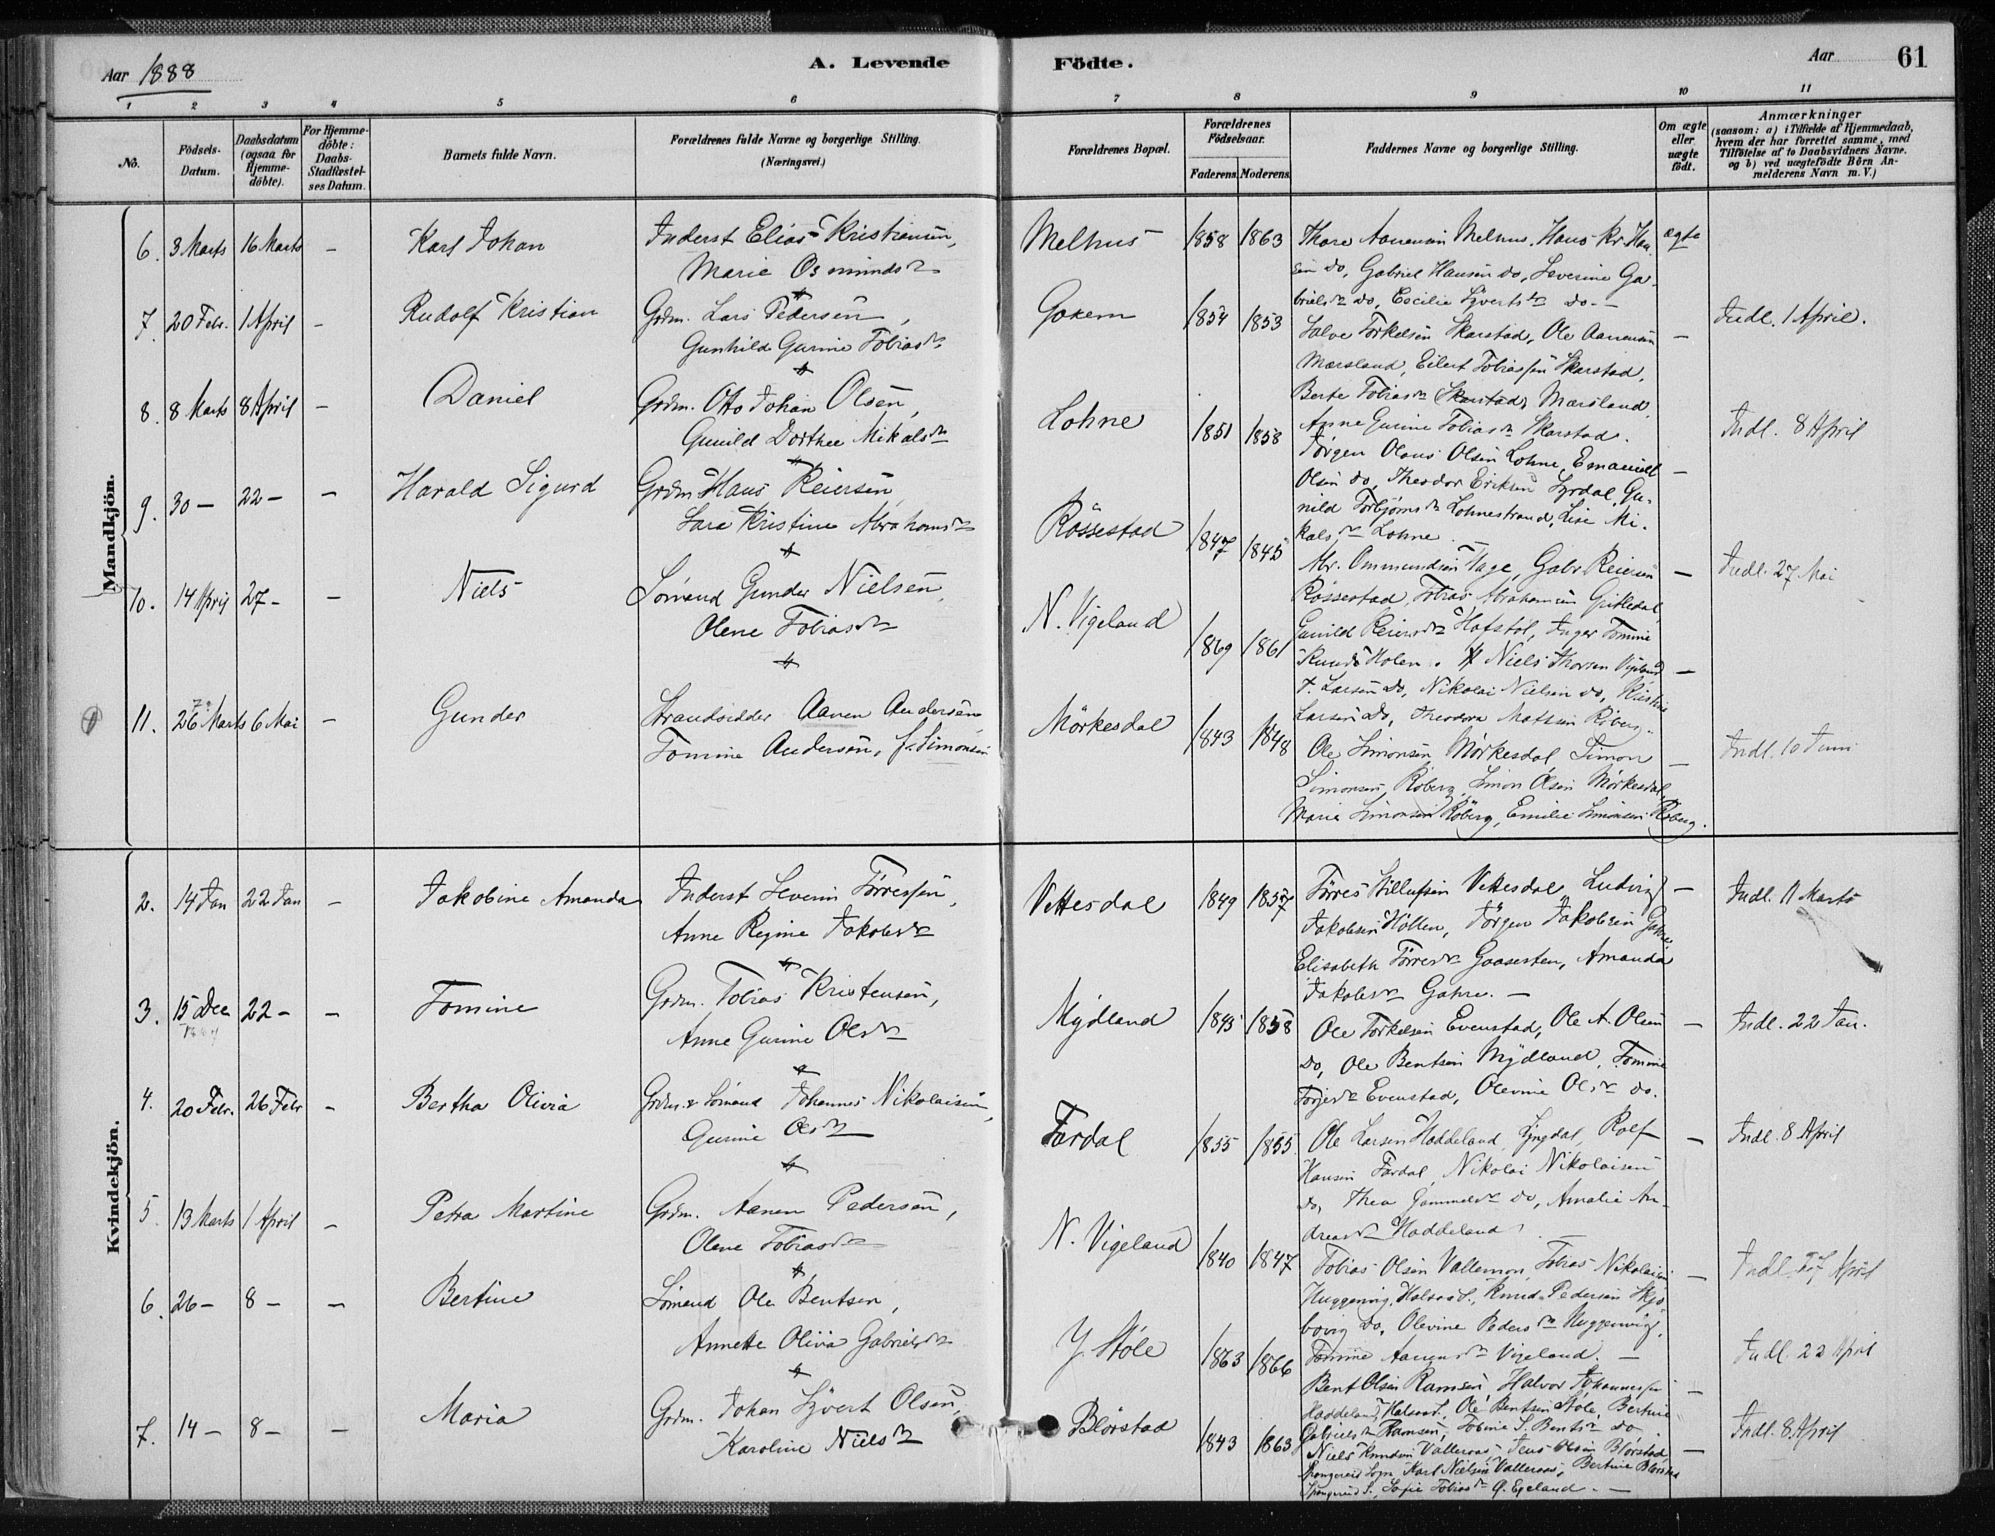 Aar 1888
A. Levende
Födte.
Aar
61
1 2 3 4 5 6 7 8 9 10 11
No.
Födsels-Datum.
Daabsdatum (ogsaa for Hjemme-döbte).
For Hjemme-döbte: Daabs-Stadfæstel-ses Datum.
Barnets fulde Navn.
Forældrenes fulde Navne og borgerlige Stilling. (Næringsvei.)
Forældrenes Bopæl.
Forældrenes Födselsaar.
Faderens. Moderens.
Faddernes Navne og borgerlige Stilling.
Om ægte eller uægte födt.
Anmærkninger
(saasom: a) i Tilfælde af Hjemmedaab, hvem der har forrettet samme, med Tilföielse af to Daabsvidners Navne. og b) ved uægtefödte Börn An-melderens Navn m. V.)
Mandkjön.
6. 3 Marts 16 Marts - Karl Johan
Inderst Elias Kristiansen,
Marie Osmundsdr
Melhus 1858 1863
Thore Aanensen Melhus, Hans Kr. Han-
sen do, Gabriel Hansen do, Severine Ga-
brielsdr do, Cecilie Syvertsdr do -
ægte
7. 20 Febr. 1 April - Rudolf Kristian
Grdm. Lars Pedersen,
Gunhild Gurine Tobiasdr
Goxem 1854 1853
Salve Torkelsen Skarstad, Ole Aanensen
Mæsland, Eilert Tobiassen Skarstad,
Berte Tobiasdr Skarstad, Marsland,
Anne Gurine Tobiasdr Skarstad.
-
Indl. 1 April.
8. 8 Marts 8 April - Daniel
Grdm. Otto Johan Olsen,
Gunild Dorthee Mikalsdr
Lohne 1851 1858
Jørgen Olaus Olsen Lohne, Emanuel
Olsen do, Theodor Eriksen Lyrdal, Gu-
nild Torbjørnsdr Lohnestrand, Lise Mi-
kalsdr Lohne
-
Indl. 8 April
9. 30 - 22 - - Harald Sigurd
Grdm Hans Reiersen,
Sara Kristine Abrahamsdr
Røssestad 1847 1845
Abr. Ommundsen Tage, Gabr Reiersen
Røssestad, Tobias Abrahamsen
Gunild Reiersdr Hofstøl, Inger Tomine
Holen.
-
Indl. 27 Mai
10. 14 April 27 - - Niels
Sømand Gunder Nielsen,
Olene Tobiasdr
N. Vigeland 1869 1861
Niels Thorsen Vigeland
T. Larsen do, Nikolai Nielsen do, Kristine
Larsen do, Theodora Matsen Røberg.
-
11. 26 Marts 6 Mai - Gunder
Strandsidder Aanen Andersen
Tomine Andersen, f. Simonsen
Mørkesdal 1843 1848
Ole Simonsen Mørkesdal, Simon
Simonsen Røberg, Simon Olsen Mørkesdal,
Marie Simonsen Røberg, Emilie Simonsen Røberg.
-
Indl. 10 Juni
Kvindekjön.
2. 14 Jan 22 Jan - Jakobine Amanda
Inderst Severin Tørressen,
Anne Regine Jakobsdr
Vettesdal 1849 1857
Tørres Vettesdal, Ludvig
Jakobsen Hølten, Jørgen Jakobsen Gahre,
Elisabeth Tørresdr Gaaserten, Amanda
Jakobsdr Gahre. -
-
Indl. 11 Marts
3. 15 Dec 1887 22 - - Tomine
Grdm. Tobias Kristensen,
Anne Gurine Olsdr
Mydland 1845 1858
Ole Torkelsen Evenstad, Ole A. Olsen
do, Ole Bentsen Mydland, Tomine
Torjesdr Evenstad, Olevine Olsdr do.
-
Indl. 22 Jan.
4. 20 Febr. 26 Febr - Bertha Olivia
Grdm. & Sømand Johannes Nikolaisen,
Gurine Olsdr
Fardal 1855 1855
Ole Larsen Haddeland, Lyngdal, Rolf
Hansen Fardal, Nikolai Nikolaisen
do, Thea Gammelsdr do, Amalie An-
dreasdr Haddeland
-
Indl. 8 April
5. 13 Marts 1 April - Petra Martine
Grdm. Aanen Pedersen,
Olene Tobiasdr
N. Vigeland 1840 1847
Tobias Olsen Vallemon, Tobias Nikolaisen
Huggenvig, Halsaa S., Knud Pedersen Skjø-
bovig do, Olevine Pedersdr Huggenvig,
Tomine Aanensdr Vigeland. -
-
Indl. April
6. 26 - 8 - - Bertine
Sømand Ole Bentsen,
Annette Olivia Gabrielsdr
Y. Støle 1863 1866
Bent Olsen Ramsøn, Halvor Johannessen
Haddeland, Halsaa S., Ole Bentsen Støle, Bertine
Gabrielsdr Ramsøn, Tobine S. Bentsdr do
-
Indl. 22 April
7. 14 - 8 - - Maria
Grdm. Johan Syvert Olsen,
Karoline Nielsdr
Blørstad 1843 1863
Niels Knudsen Valleraas, Jens Olsen Blørstad,
Spangereid Sogn, Karl Nielsen Valleraas, Bertine Blørstad
Spangereid S., Sofie Tobiasdr Ø. Egeland. -
-
Indl. 8 April